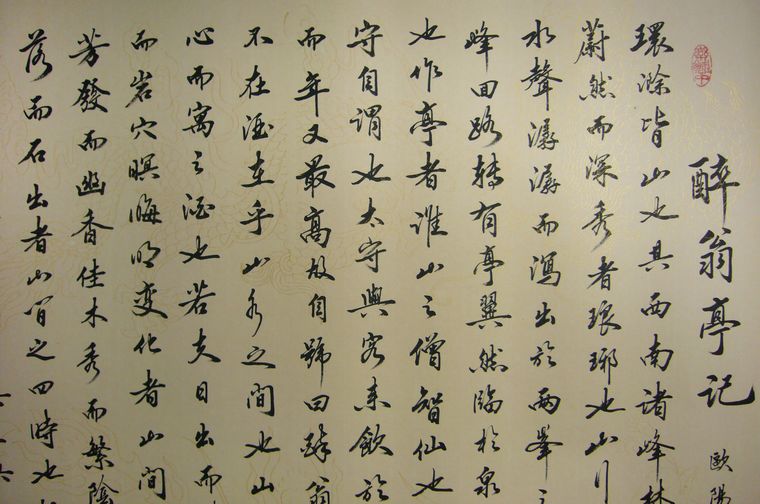 醉翁亭记
歐陽
環滁皆山也其西南諸峰林
蔚然而深秀者琅琊也山行
水聲潺潺而瀉出於兩峯之
峰回路轉有亭翼然臨於泉
也作亭者誰山之僧智仙也
守自謂也太守與客来飲於
而年又最高故自號曰醉翁
不在酒在乎山水之間也山
心而寓之酒也若夫日出而
而岩穴暝晦明变化者山間
芳發而幽香佳木秀而繁陰
落而石出者山间之四時也